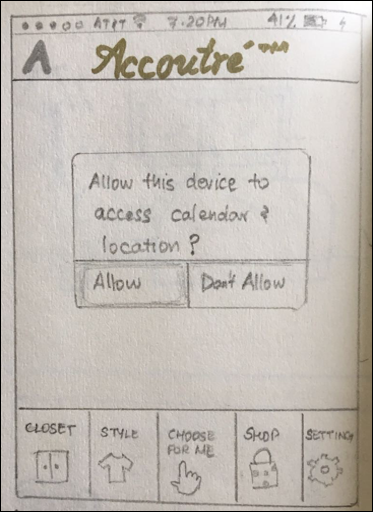 AT&T 7:20PM 41%
A Accoutré
Allow this device to
access calendar &
location ?
Allow Don't Allow
CLOSET STYLE CHOOSE SHOP SETTING
FOR ME